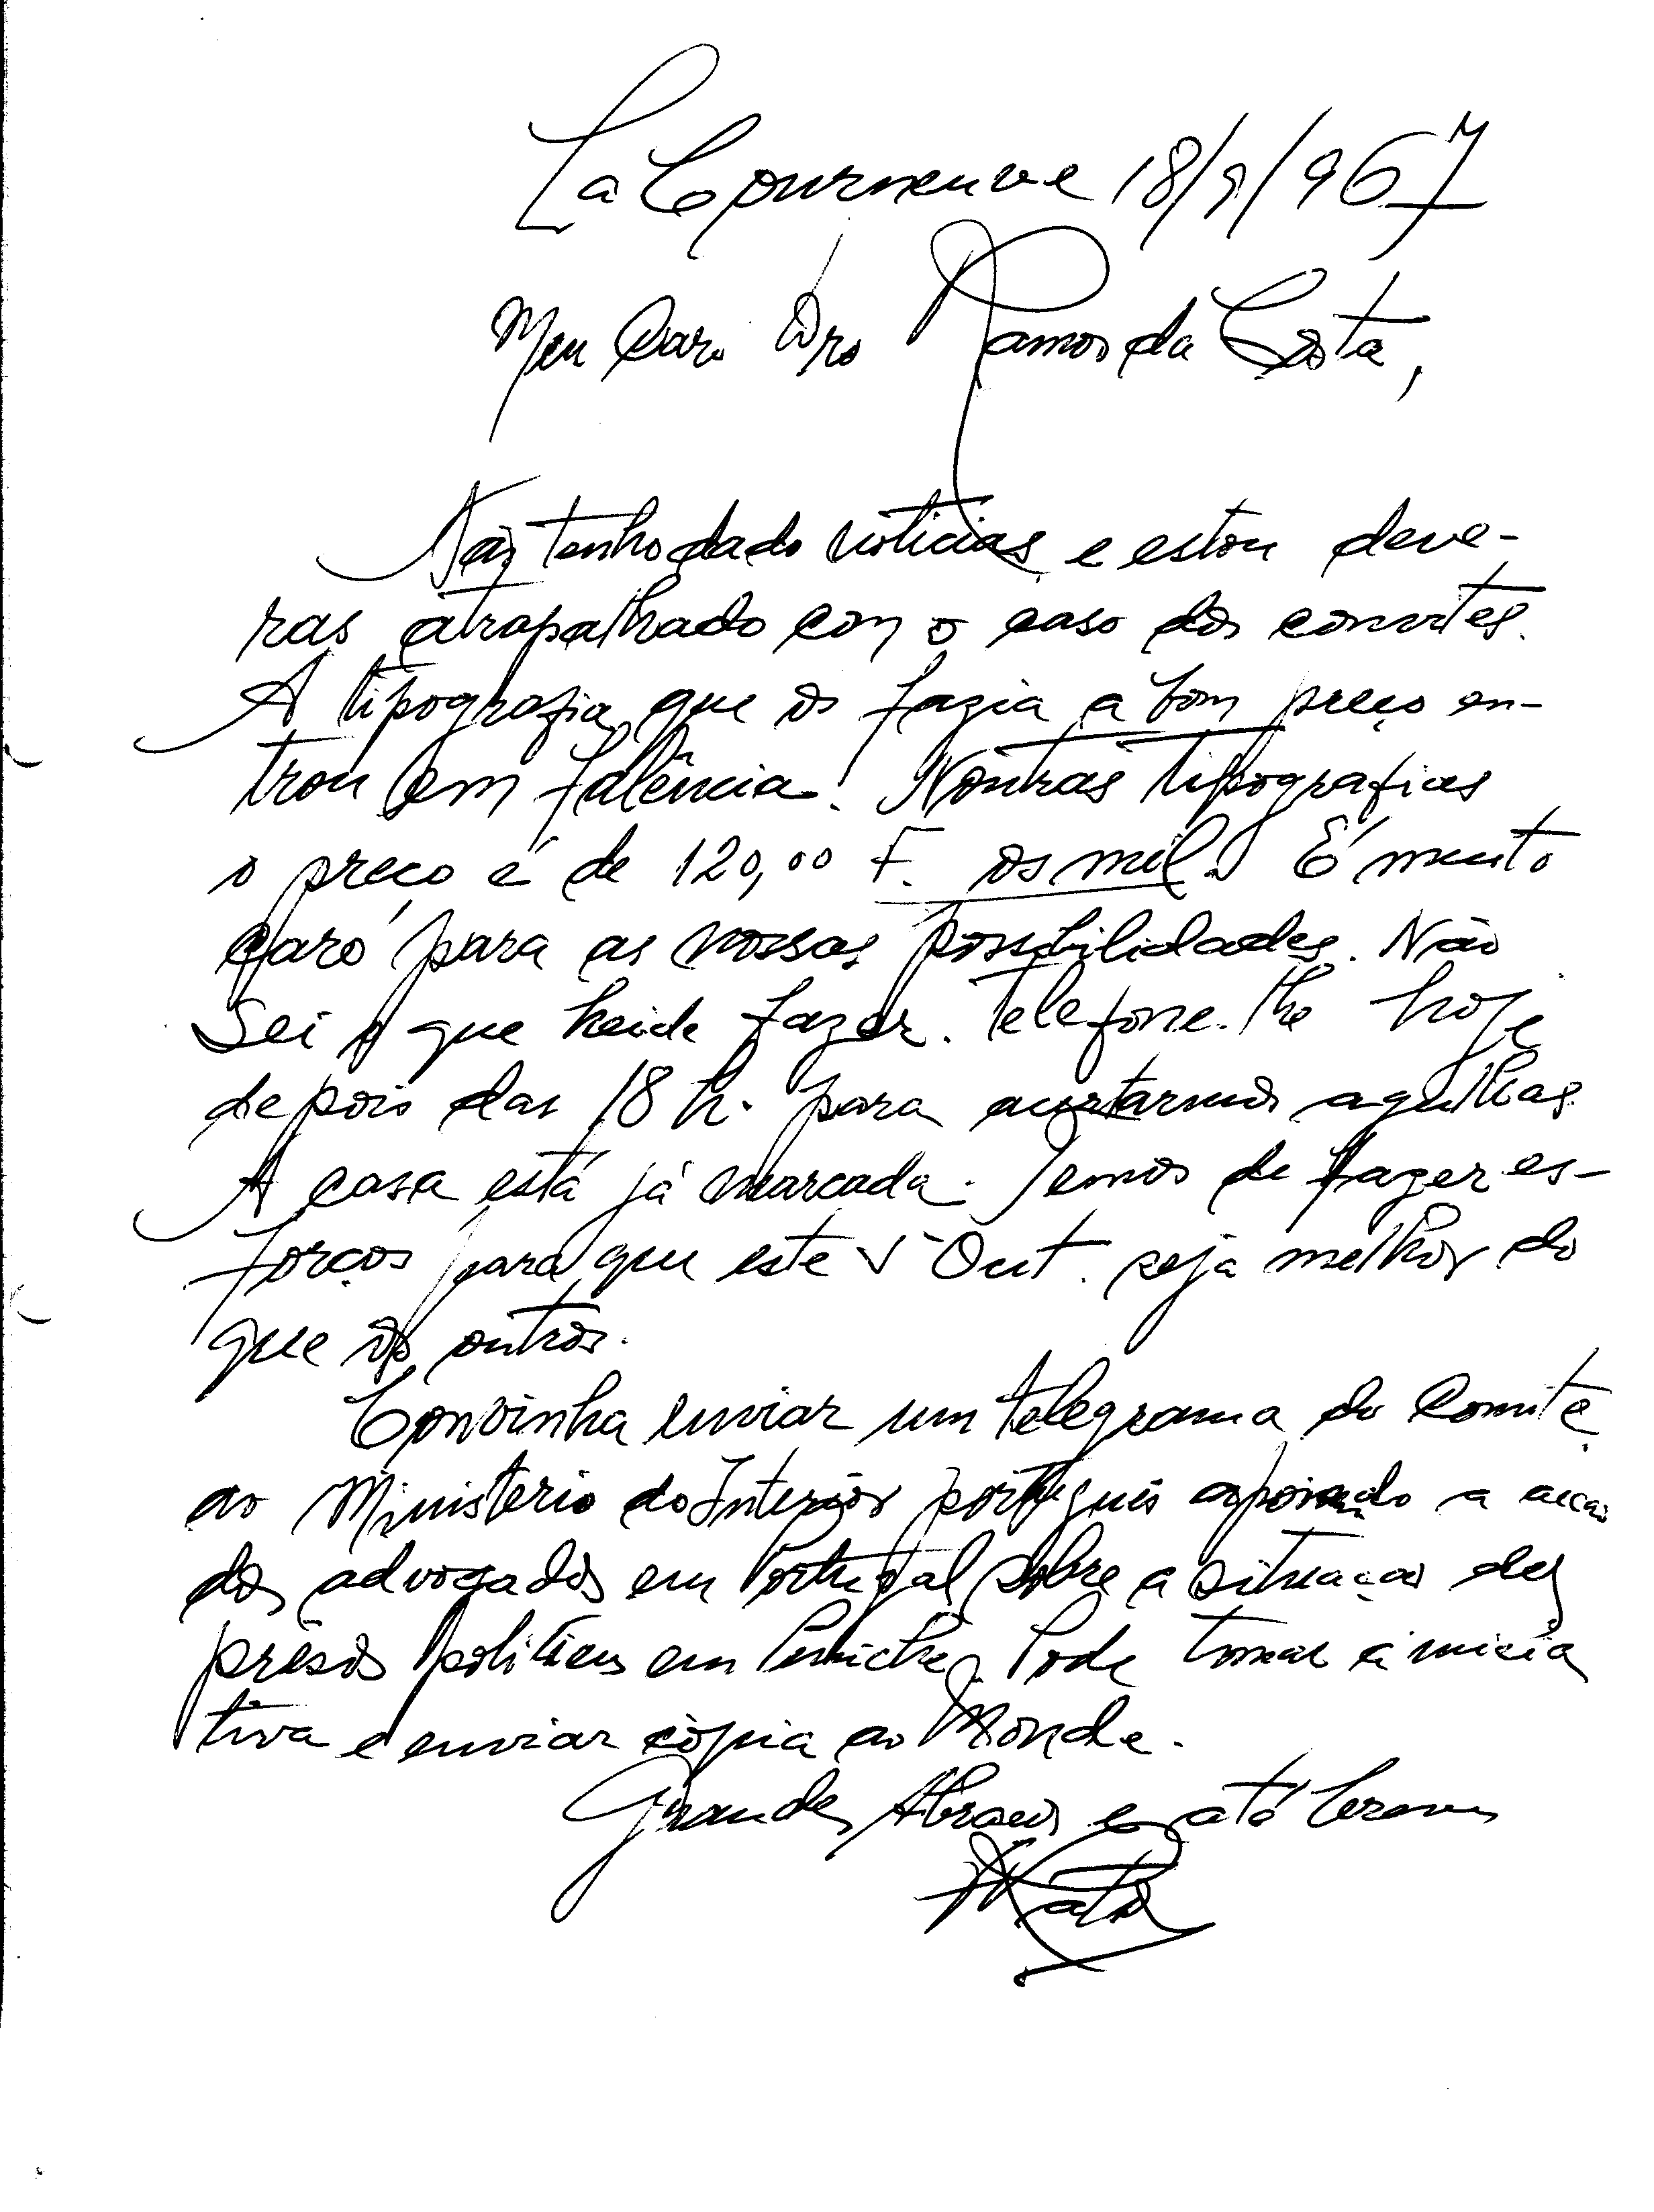 La Courneuve 18/9/967
Meu Caro Dro Ramos da Costa,
Não tenho dado noticias e estou deve-
ras atrapalhado com o caso dos convites.
A tipografia que os fazia a bom preço en-
trou em falência! Noutras tipografias
o preço é de 120,00 F. os mil. É muito
caro para as nossas possibilidades. Não
sei o que heide fazer. Telefone-lhe hoje
depois das 18 h. para acertarmos agulhas.
A casa está já marcada. Temos de fazer es-
forços para que este 5 Out. seja melhor do
que os outros.
Convinha enviar um telegrama do Comité
ao Ministério do Interior português apoiando a acção
dos advogados em Portugal sobre a situação dos
prêsos politicos em Peniche. Pode tomar a inicia
tiva e enviar cópia ao Monde.
Grandes Abraços e até breve